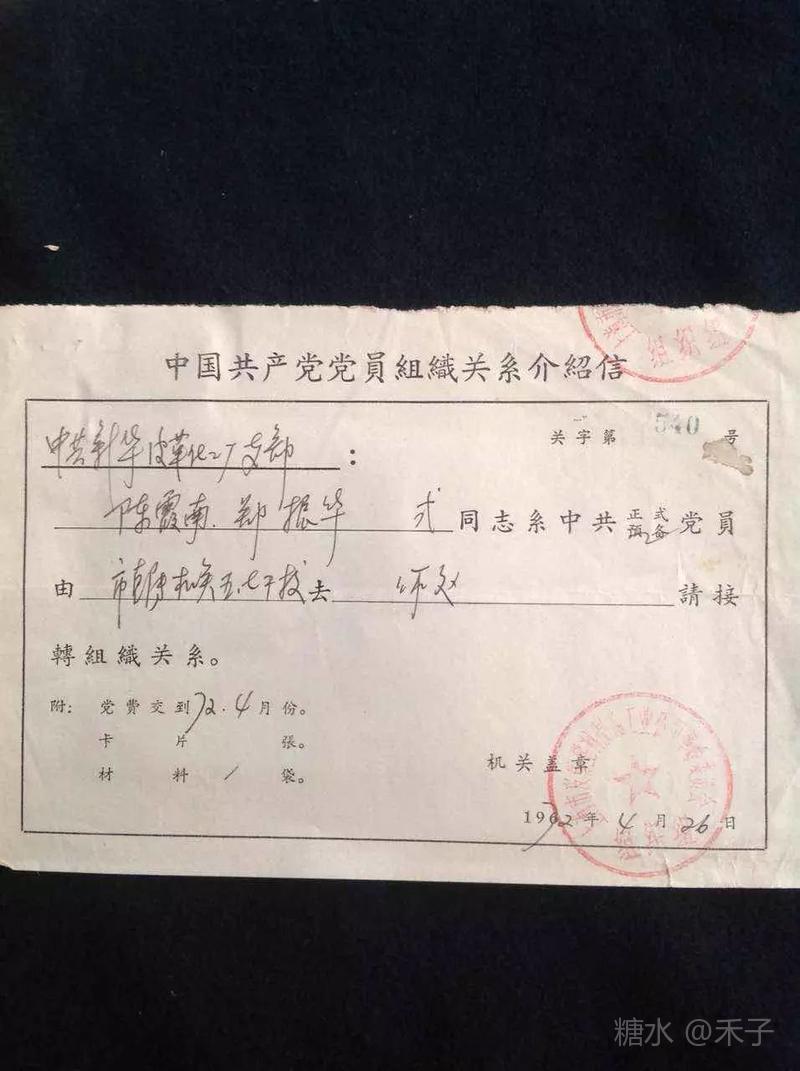 中国共产党党员组織关系介紹信
关字第 540 号
中共新华皮革化工厂支部：
陈霞南、郑振华 式 同志系中共 正式 预备 党员
由 市 五.七干校 去 請接
轉組織关系。
附：党費交到 72.4 月份。
卡片 張。
材料 / 袋。
机关盖章
1972 年 4 月 26 日
组织组
糖水 @禾子